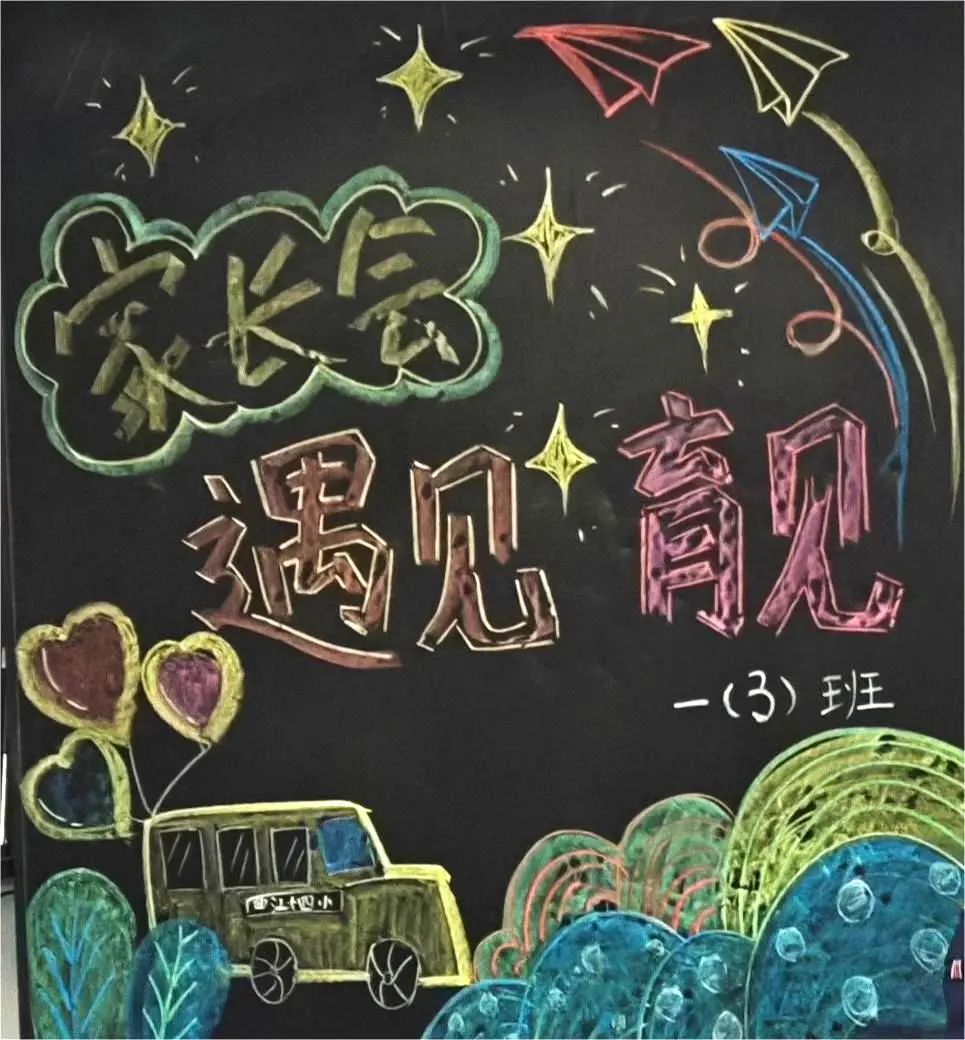 家长会
遇见 育见
一(3)班
曲江十四小